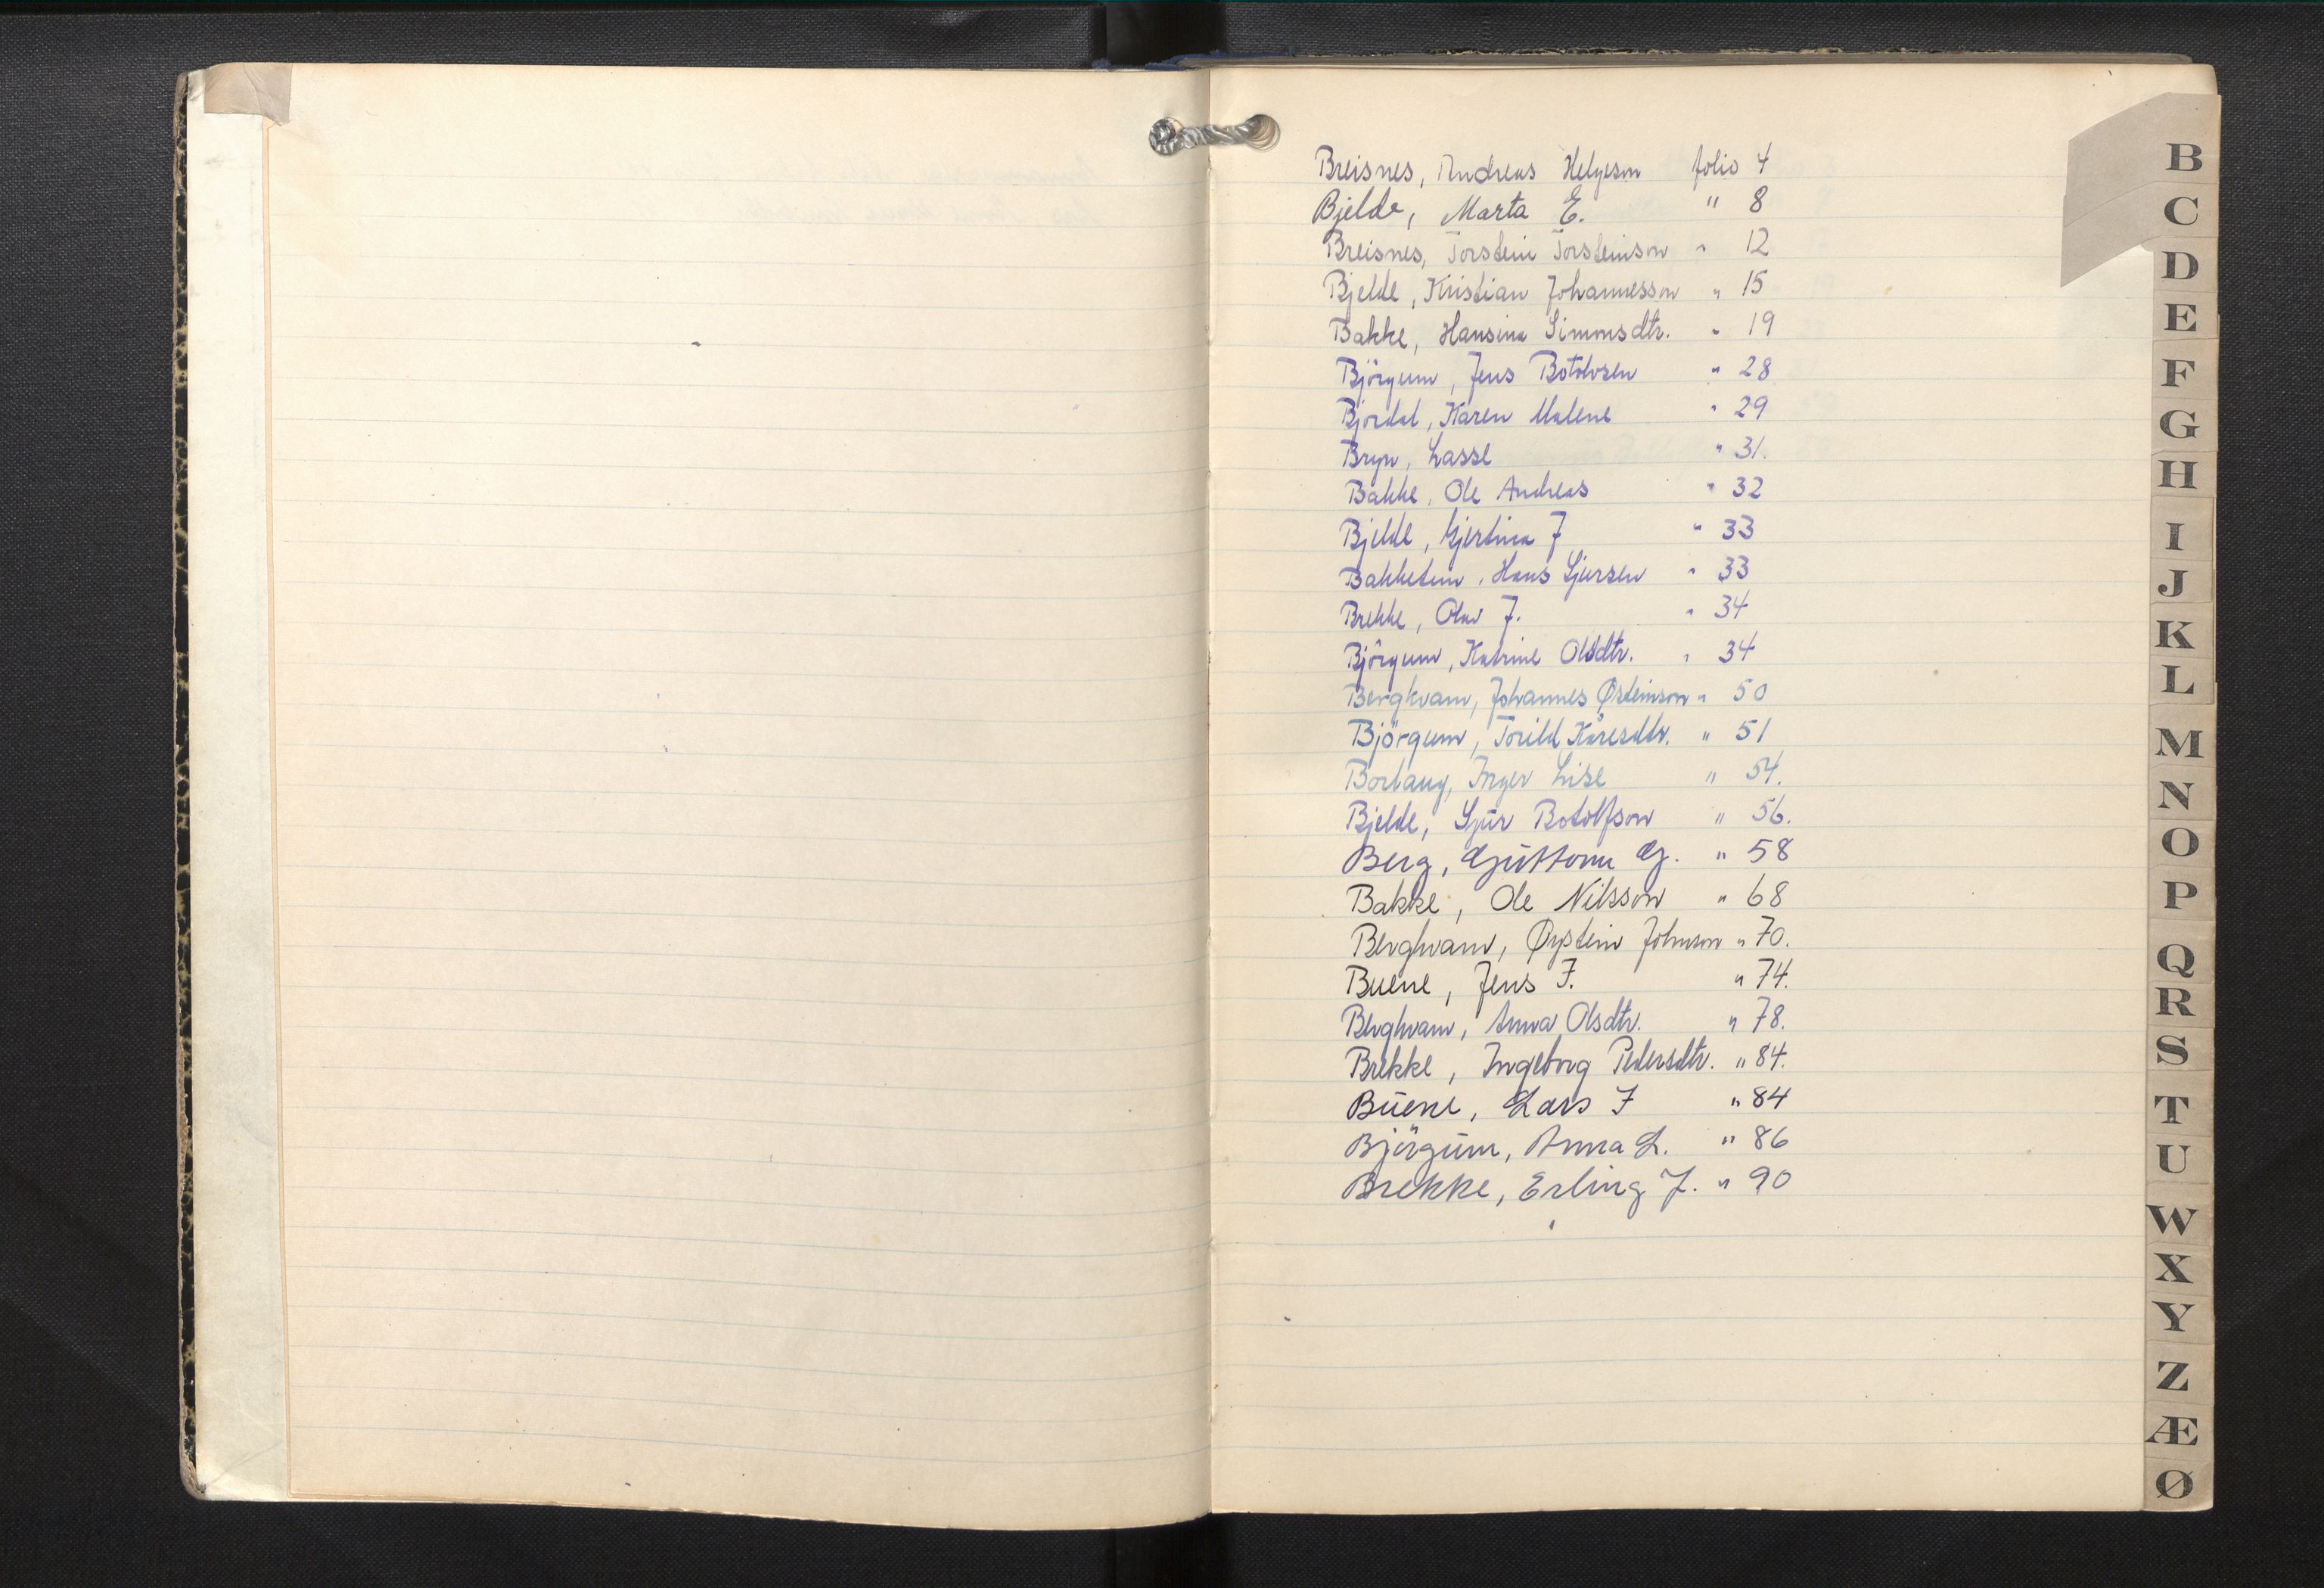 Breisnes, Andreas Helgeson folio 4
Bjelde, Marta E. " 8
Breisnes, Torstein Torsteinson " 12
Bjelde, Kristian Johannesson " 15
Bakke, Hansina Simonsdtr. " 19
Björgum, Jens Botolvsen " 28
Bjordal, Karen Malene " 29
Bryn, Lasse " 31.
Bakke, Ole Andreas " 32
Bjelde, Gjertina J " 33
Bakketun, Hans Sjursen " 33
Brekke, Olav J. " 34
Björgum, Katrine Olsdtr. " 34
Bergkvam, Johannes Østeinson " 50
Björgum, Torild Kåresdtr. " 51
Borlaug, Inger Lise " 54.
Bjelde, Sjur Botolfson " 56.
Berg, Guttorm G. " 58
Bakke, Ole Nilsson " 68
Berghvam, Øystein Johnson " 70.
Buene, Jens J. " 74.
Berghvam, Anna Olsdtr. " 78.
Brekke, Ingeborg Pedersdtr. " 84.
Buene, Lars J " 84
Björgum, Anna L. " 86
Brekke, Erling J. " 90
B
C
D
E
F
G
H
I
J
K
L
M
N
O
P
Q
R
S
T
U
W
X
Y
Z
Æ
Ø